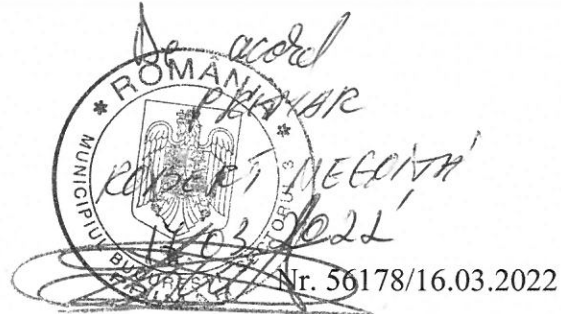 De acord
PRIMAR
ROBERT NEGOIȚĂ
17.03.2022
* ROMÂNIA *
MUNICIPIUL BUCUREȘTI
SECTORUL 3
Nr. 56178/16.03.2022